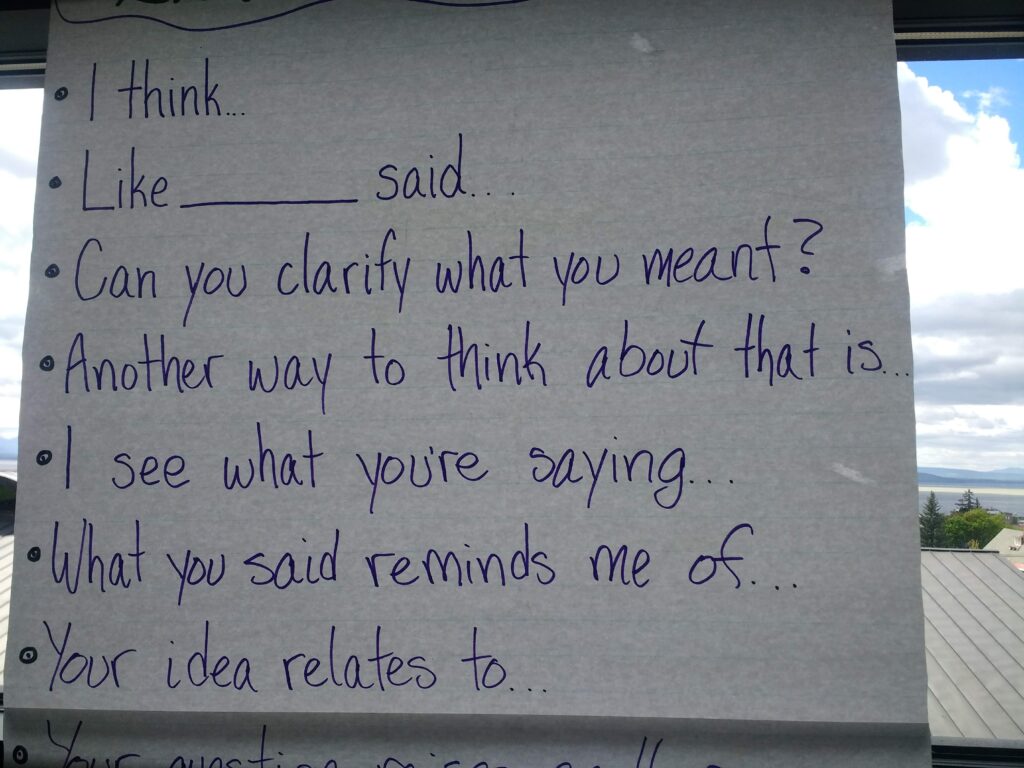 • I think...
• Like ______ said...
• Can you clarify what you meant?
• Another way to think about that is...
• I see what you're saying...
• What you said reminds me of...
• Your idea relates to...
• Your question